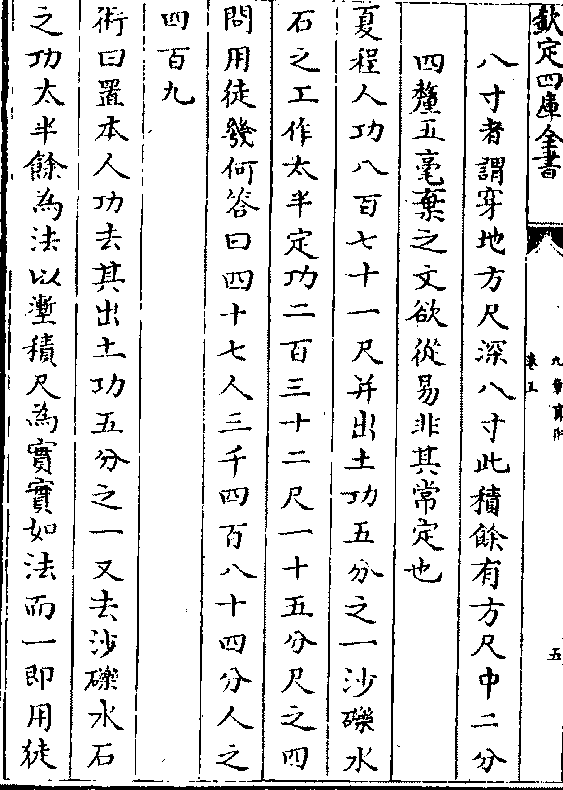 欽定四庫全書
九章算術
卷五
五
八寸者謂穿地方尺深八寸此積餘有方尺中二分
四釐五毫棄之文欲從易非其常定也
夏程人功八百七十一尺并出土功五分之一沙礫水
石之工作太半定功二百三十二尺一十五分尺之四
問用徒㡬何答曰四十七人三千四百八十四分人之
四百九
術曰置本人功去其出土功五分之一又去沙礫水石
之功太半餘為法以壍積尺為實實如法而一即用徒